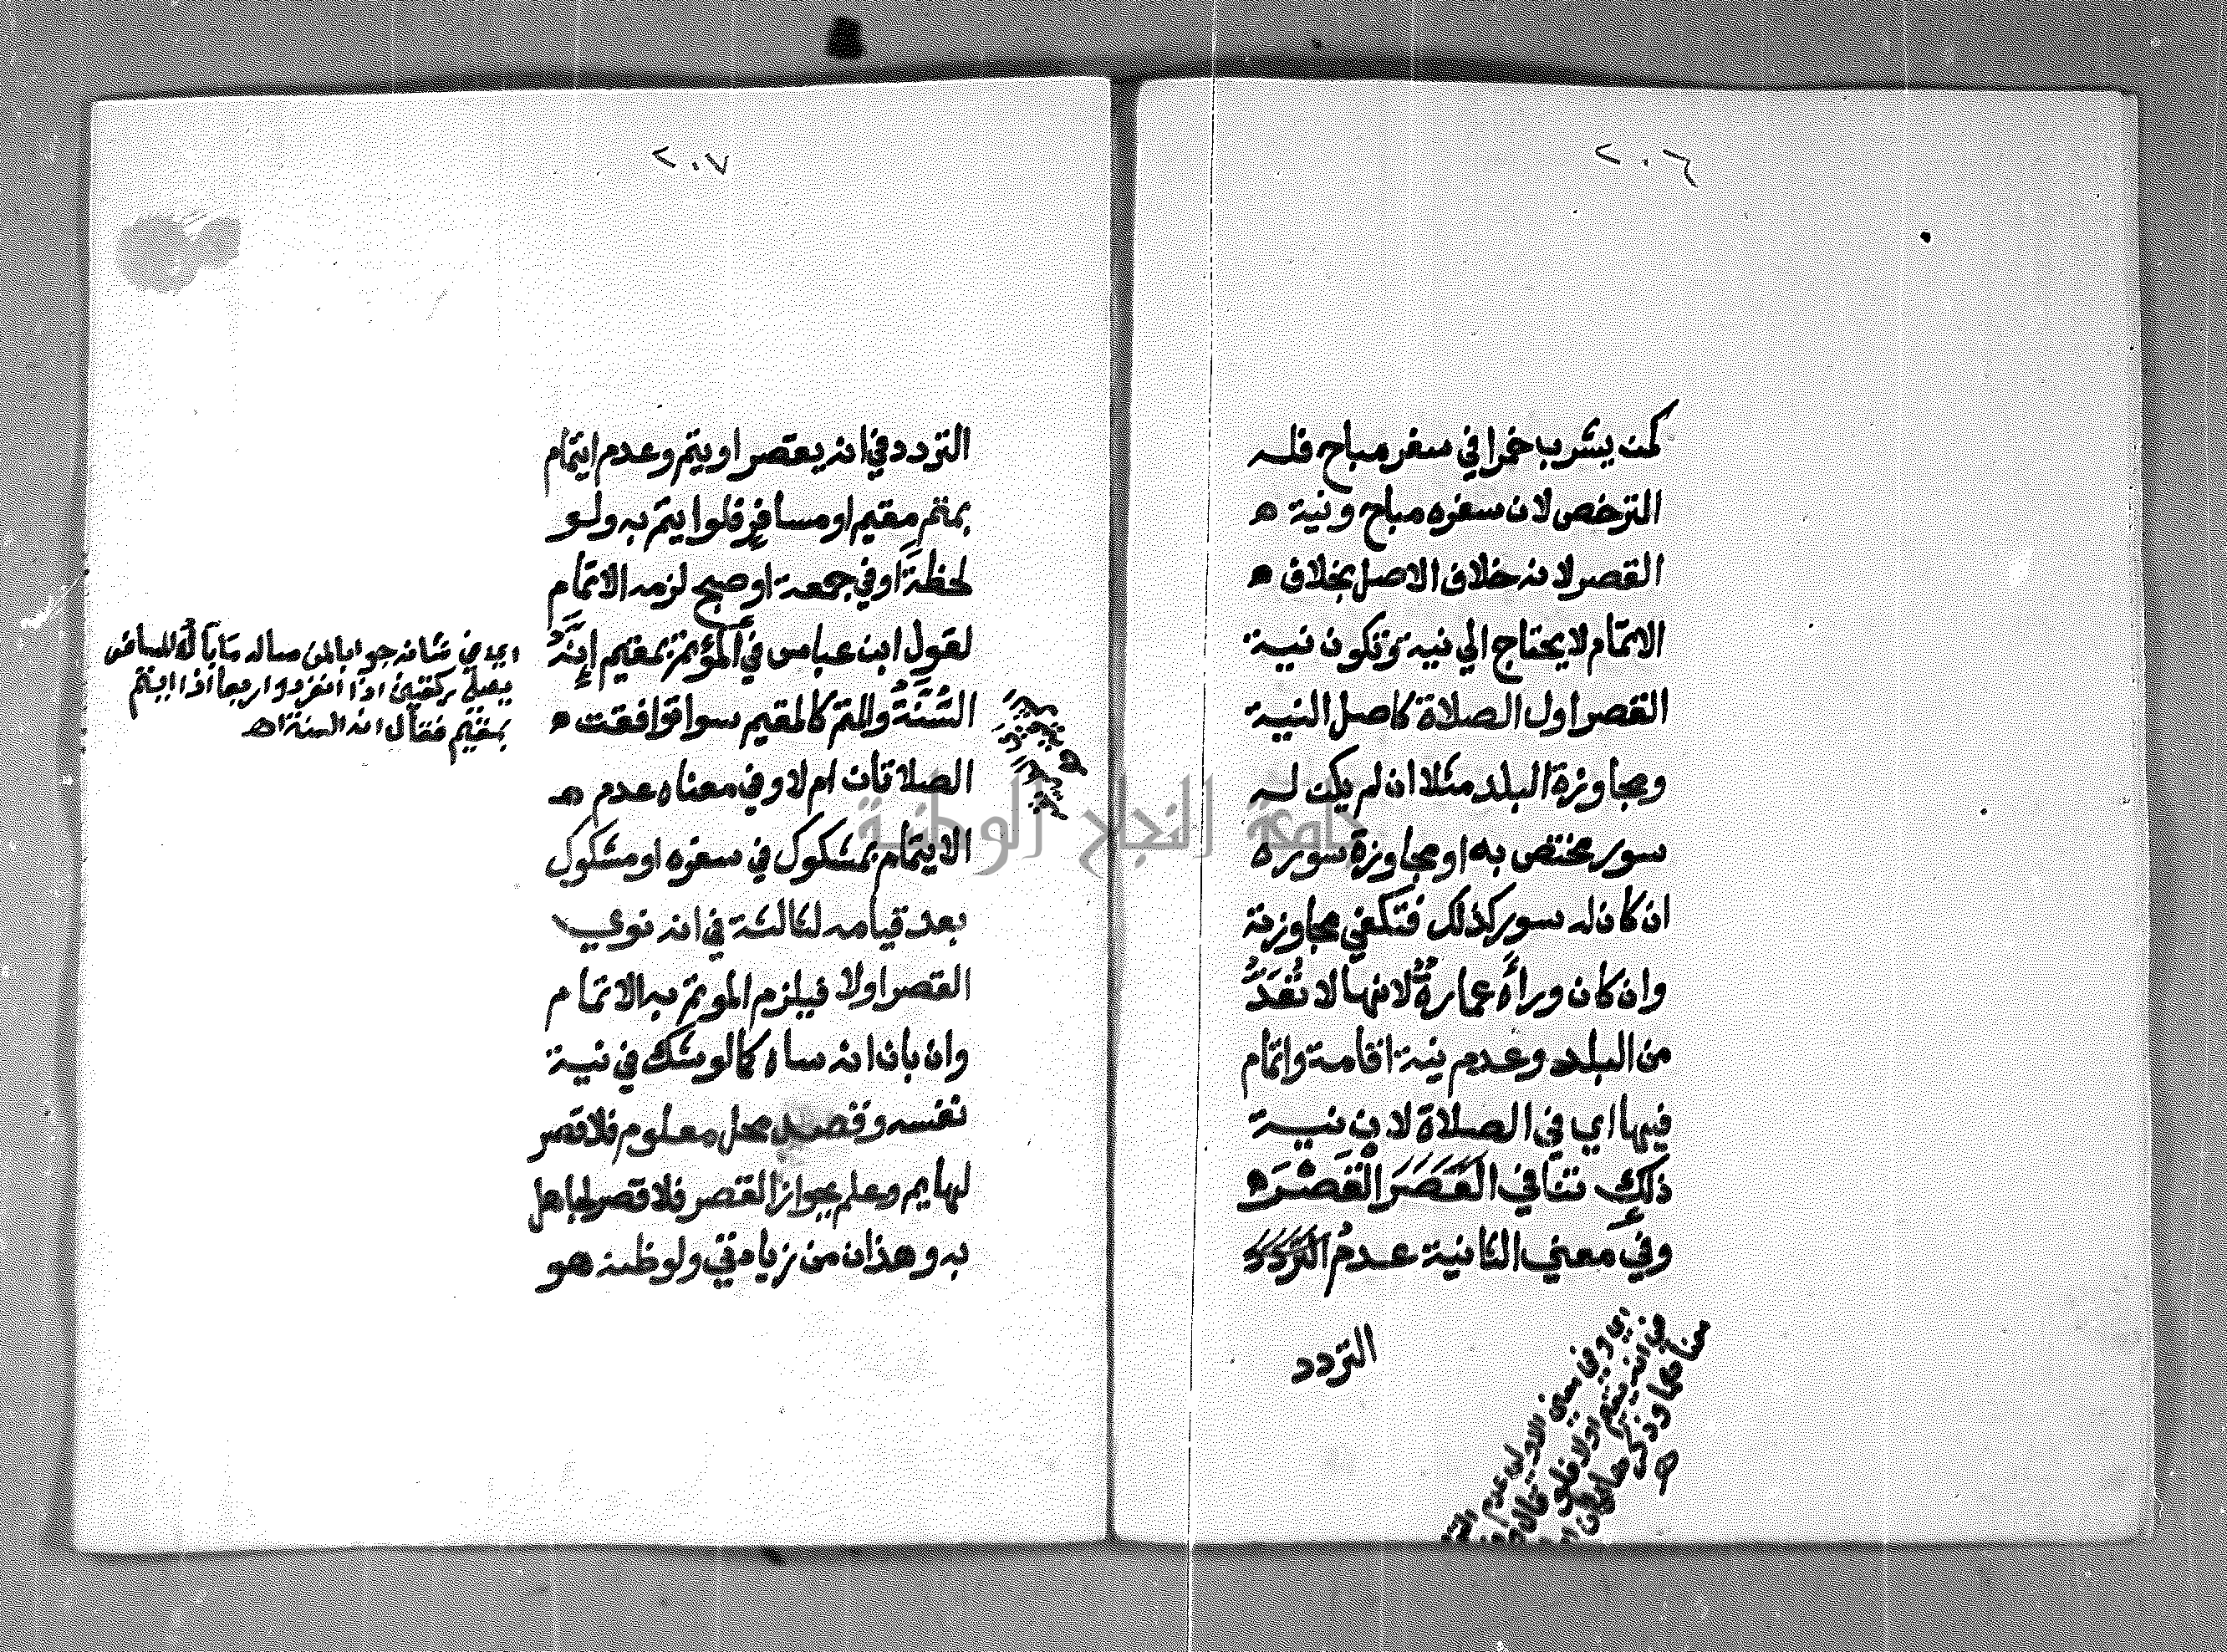 ٢٠٦
كمن يشرب خمرا في سفر مباح فله
الترخص لان سفره مباح ونية ه
القصر لانه خلاف الاصل بخلاف ه
الاتمام لا يحتاج الي نية وتكون نية
القصر اول الصلاة كاصل النية
ومجاوزة البلد مثلا ان لم يكن له
سور مختص به او مجاوزة سوره
ان كان له سور كذلك فتكفي مجاوزته
وان كان وراه عمارة لانها لا تُعَدُّ
من البلد وعدم نية اقامة واتمام
فيها اي في الصلاة لان نية
ذلك تنافي القَصَرَ القَصْرَ ه
وفي معني الثانية عدمُ التردد
التردد
اي وفي معني الاولي عدم
في انه يتم اولا فلو قال
٢٠٧
التردد في انه يقصر او يتم وعدم ايتمام
بمتم مقيم او مسافرٍ فلو ايتم به ولو
لحظةً او في جمعة او صبح لزمه الاتمام
لقول ابن عباس في المؤتم بمقيم إنَّهُ
السُّنَّةُ والمتم كالمقيم سوا توافقت ه
الصلاتان ام لا وفي معناه عدم ه
الايتمام بمشكوك في سفره او مشكوك
بعد قيامه لثالثة في انه نوي
القصر اولا فيلزم الموتم به الاتمام
وان بان انه ساه كما لو شك في نية
نفسه وقصد محل معلوم فلا قصر
لهايم وعلم بجواز القصر فلا قصر لجاهل
به وهذان من زيادتي ولو ظنه هو
اي في شانه جوابا لمن ساله ما بال المسافر
يصلي ركعتين اذا انفرد واربعا اذا ايتم
بمقيم فقال انه السنة اه